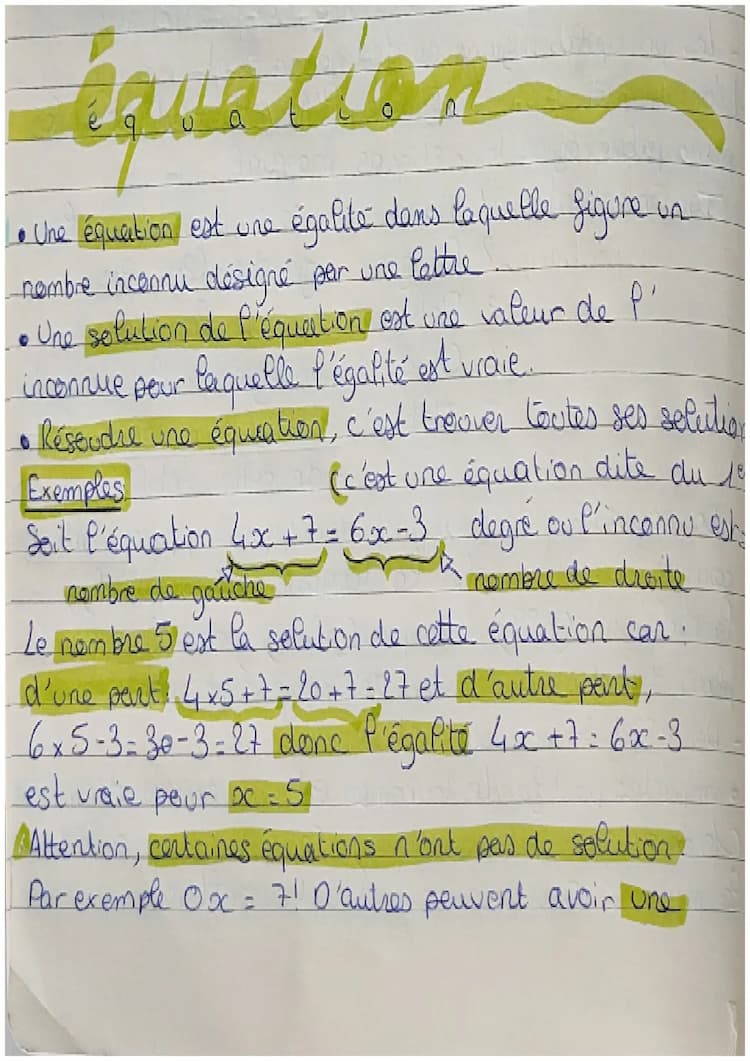 équation
é q u a t i o n
• Une équation est une égalité dans laquelle figure un
nombre inconnu désigné par une lettre.
• Une solution de l'équation est une valeur de l'
inconnue pour laquelle l'égalité est vraie.
• Résoudre une équation, c'est trouver toutes ses solution
Exemples (c'est une équation dite du 1e
Soit l'équation 4x+7=6x-3 degré ou l'inconnu est
nombre de gauche nombre de droite
Le nombre 5 est la solution de cette équation car :
d'une part: 4x5+7=20+7=27 et d'autre part,
6x5-3=30-3=27 donc l'égalité 4x+7=6x-3
est vraie pour x=5
Attention, certaines équations n'ont pas de solution.
Par exemple 0x = 7! D'autres peuvent avoir une